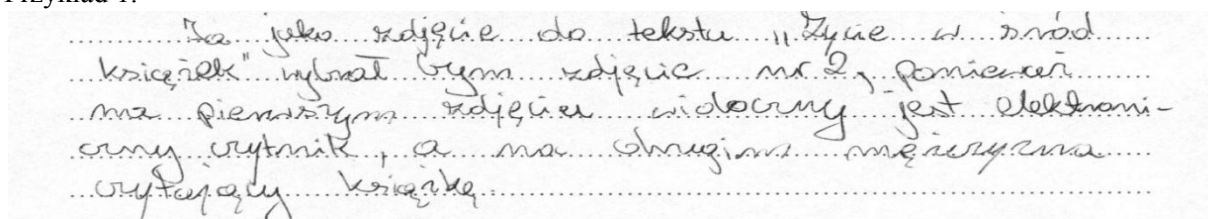 Przykład 1.
Ja jako zdjęcie do tekstu „Życie w śród
książek" wybrał bym zdjęcie nr 2, ponieważ
na pierwszym zdjęciu widoczny jest elektroni-
czny czytnik, a na drugim mężczyzna
czytający książkę.